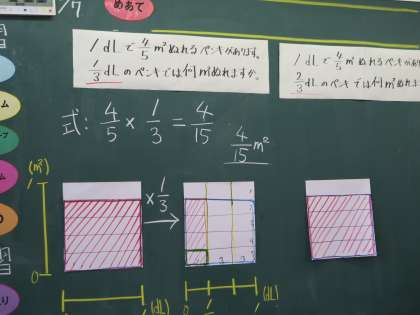 /7
めあて
1dLで4/5m²ぬれるペンキがあります。
1/3dLのペンキでは何m²ぬれますか。
1dLで4/5m²ぬれるペンキがあ
2/3dLのペンキでは何m²ぬれま
式: 4/5 × 1/3 = 4/15
4/15 m²
(m²)
1
0
×1/3
(dL)
0
(dL)